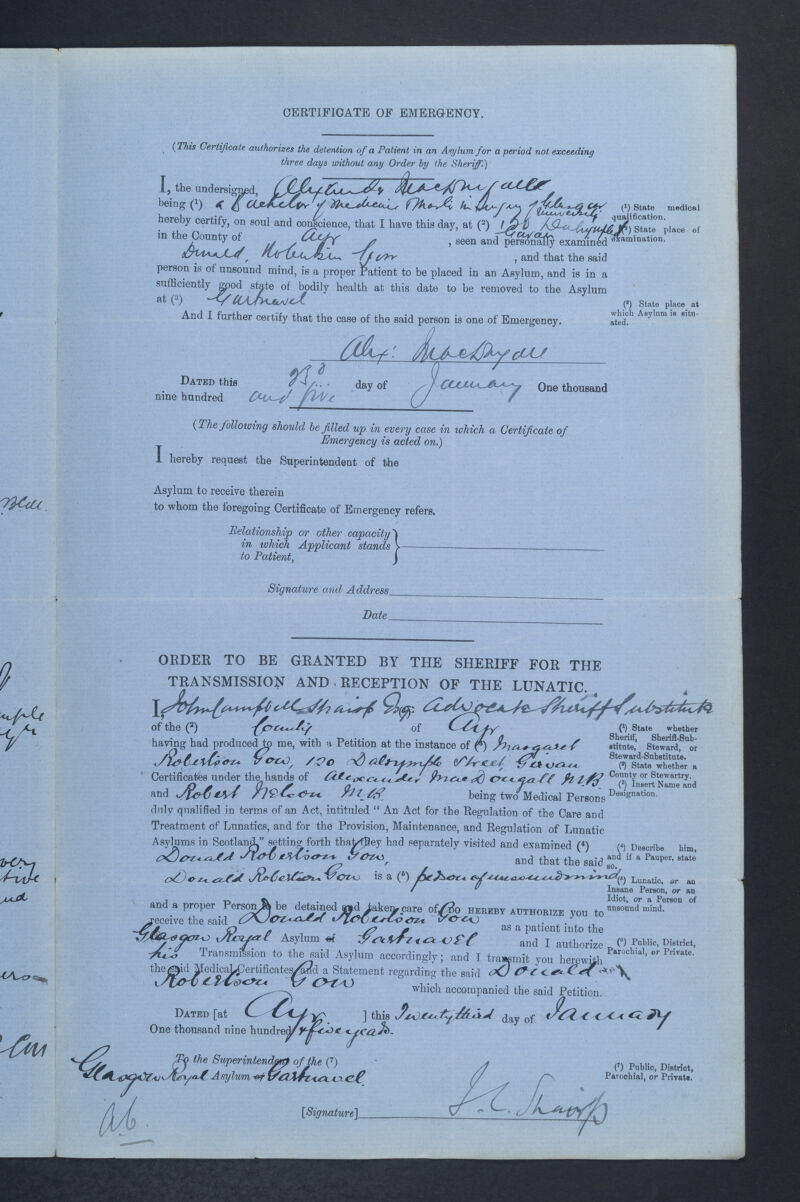 CERTIFICATE OF EMERGENCY.
(This Certificate authorizes the detention of a Patient in an Asylum for a period not exceeding
three days without any Order by the Sheriff.)
I, the undersigned, Alexander MacDougall
being (¹) a Bachelor of Medicine & Master in Surgery of Glasgow University
(¹) State medical
qualification.
hereby certify, on soul and conscience, that I have this day, at (²) 120 Dalrymple St Girvan
(²) State place of
examination.
in the County of Ayr, seen and personally examined
Donald Robertson Gow, and that the said
person is of unsound mind, is a proper Patient to be placed in an Asylum, and is in a
sufficiently good state of bodily health at this date to be removed to the Asylum
at (³) Gartnavel
(³) State place at
which Asylum is situ-
ated.
And I further certify that the case of the said person is one of Emergency.
Alex: MacDougall
DATED this 23d day of January One thousand
nine hundred and five
(The following should be filled up in every case in which a Certificate of
Emergency is acted on.)
I hereby request the Superintendent of the
Asylum to receive therein
to whom the foregoing Certificate of Emergency refers.
Relationship or other capacity
in which Applicant stands
to Patient,
Signature and Address
Date
ORDER TO BE GRANTED BY THE SHERIFF FOR THE
TRANSMISSION AND RECEPTION OF THE LUNATIC.
I, John Campbell Shairp Esq: Advocate Sheriff Substitute
of the (²) County of Ayr
(¹) State whether
Sheriff, Sheriff-Sub-
stitute, Steward, or
Steward-Substitute.
having had produced to me, with a Petition at the instance of (³) Margaret
Robertson Gow, 120 Dalrymple Street, Girvan
(²) State whether a
County or Stewartry.
Certificates under the hands of Alexander MacDougall M.B.
(³) Insert Name and
Designation.
and Robert Nelson M.B. being two Medical Persons
duly qualified in terms of an Act, intituled "An Act for the Regulation of the Care and
Treatment of Lunatics, and for the Provision, Maintenance, and Regulation of Lunatic
Asylums in Scotland," setting forth that they had separately visited and examined (⁴)
(⁴) Describe him,
and if a Pauper, state
so.
Donald Robertson Gow, and that the said
Donald Robertson Gow is a (⁵) person of unsound mind
(⁵) Lunatic, or an
Insane Person, or an
Idiot, or a Person of
unsound mind.
and a proper Person to be detained and taken care of, DO HEREBY AUTHORIZE you to
receive the said Donald Robertson Gow as a patient into the
Glasgow Royal Asylum at Gartnavel and I authorize
(⁶) Public, District,
Parochial, or Private.
his Transmission to the said Asylum accordingly; and I transmit you herewith
the said Medical Certificates and a Statement regarding the said Donald
Robertson Gow which accompanied the said Petition.
DATED [at Ayr ] this Twenty third day of January
One thousand nine hundred & five years.
To the Superintendent of the (⁷)
Glasgow Royal Asylum at Gartnavel.
(⁷) Public, District,
Parochial, or Private.
[Signature] J. C. Shairp